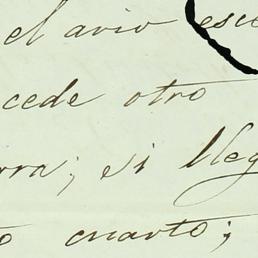 el avio esc
cede otro
rra; si lleg
o cuarto;